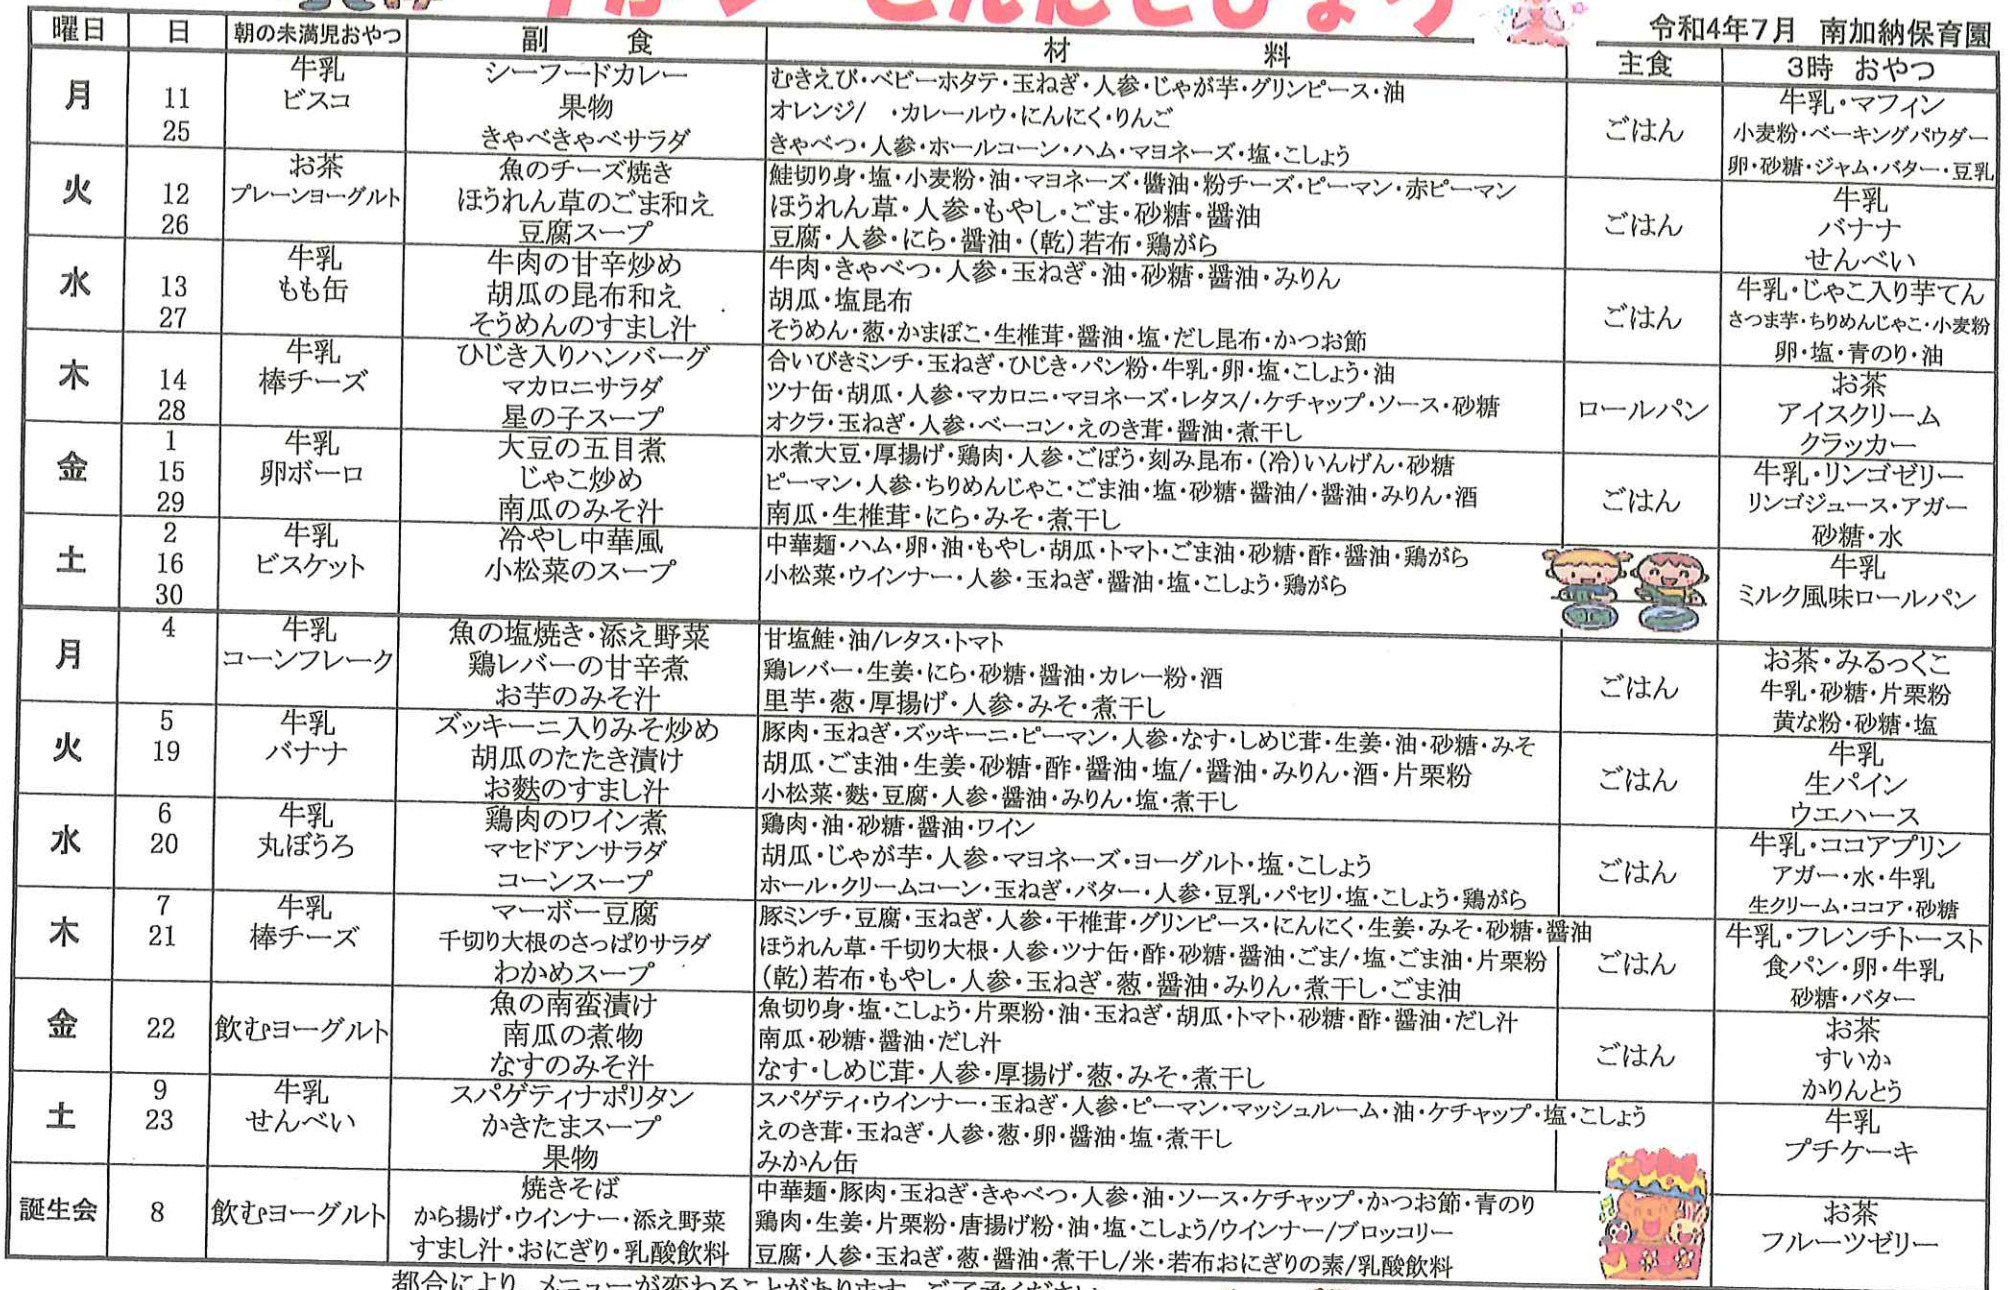 令和4年7月 南加納保育園
曜日 日 朝の未満児おやつ 副 食 材 料 主食 3時 おやつ
月 11 25
牛乳
ビスコ
シーフードカレー
果物
きゃべきゃべサラダ
むきえび・ベビーホタテ・玉ねぎ・人参・じゃが芋・グリンピース・油
オレンジ/ ・カレールウ・にんにく・りんご
きゃべつ・人参・ホールコーン・ハム・マヨネーズ・塩・こしょう
ごはん
牛乳・マフィン
小麦粉・ベーキングパウダー
卵・砂糖・ジャム・バター・豆乳
火 12 26
お茶
プレーンヨーグルト
魚のチーズ焼き
ほうれん草のごま和え
豆腐スープ
鮭切り身・塩・小麦粉・油・マヨネーズ・醬油・粉チーズ・ピーマン・赤ピーマン
ほうれん草・人参・もやし・ごま・砂糖・醤油
豆腐・人参・にら・醤油・(乾)若布・鶏がら
ごはん
牛乳
バナナ
せんべい
水 13 27
牛乳
もも缶
牛肉の甘辛炒め
胡瓜の昆布和え
そうめんのすまし汁
牛肉・きゃべつ・人参・玉ねぎ・油・砂糖・醤油・みりん
胡瓜・塩昆布
そうめん・葱・かまぼこ・生椎茸・醤油・塩・だし昆布・かつお節
ごはん
牛乳・じゃこ入り芋てん
さつま芋・ちりめんじゃこ・小麦粉
卵・塩・青のり・油
木 14 28
牛乳
棒チーズ
ひじき入りハンバーグ
マカロニサラダ
星の子スープ
合いびきミンチ・玉ねぎ・ひじき・パン粉・牛乳・卵・塩・こしょう・油
ツナ缶・胡瓜・人参・マカロニ・マヨネーズ・レタス/・ケチャップ・ソース・砂糖
オクラ・玉ねぎ・人参・ベーコン・えのき茸・醤油・煮干し
ロールパン
お茶
アイスクリーム
クラッカー
金 1 15 29
牛乳
卵ボーロ
大豆の五目煮
じゃこ炒め
南瓜のみそ汁
水煮大豆・厚揚げ・鶏肉・人参・ごぼう・刻み昆布・(冷)いんげん・砂糖
ピーマン・人参・ちりめんじゃこ・ごま油・塩・砂糖・醤油/・醤油・みりん・酒
南瓜・生椎茸・にら・みそ・煮干し
ごはん
牛乳・リンゴゼリー
リンゴジュース・アガー
砂糖・水
土 2 16 30
牛乳
ビスケット
冷やし中華風
小松菜のスープ
中華麺・ハム・卵・油・もやし・胡瓜・トマト・ごま油・砂糖・酢・醤油・鶏がら
小松菜・ウインナー・人参・玉ねぎ・醤油・塩・こしょう・鶏がら
牛乳
ミルク風味ロールパン
月 4
牛乳
コーンフレーク
魚の塩焼き・添え野菜
鶏レバーの甘辛煮
お芋のみそ汁
甘塩鮭・油/レタス・トマト
鶏レバー・生姜・にら・砂糖・醤油・カレー粉・酒
里芋・葱・厚揚げ・人参・みそ・煮干し
ごはん
お茶・みるっくこ
牛乳・砂糖・片栗粉
黄な粉・砂糖・塩
火 5 19
牛乳
バナナ
ズッキーニ入りみそ炒め
胡瓜のたたき漬け
お麩のすまし汁
豚肉・玉ねぎ・ズッキーニ・ピーマン・人参・なす・しめじ茸・生姜・油・砂糖・みそ
胡瓜・ごま油・生姜・砂糖・酢・醤油・塩/・醤油・みりん・酒・片栗粉
小松菜・麩・豆腐・人参・醤油・みりん・塩・煮干し
ごはん
牛乳
生パイン
ウエハース
水 6 20
牛乳
丸ぼうろ
鶏肉のワイン煮
マセドアンサラダ
コーンスープ
鶏肉・油・砂糖・醤油・ワイン
胡瓜・じゃが芋・人参・マヨネーズ・ヨーグルト・塩・こしょう
ホール・クリームコーン・玉ねぎ・バター・人参・豆乳・パセリ・塩・こしょう・鶏がら
ごはん
牛乳・ココアプリン
アガー・水・牛乳
生クリーム・ココア・砂糖
木 7 21
牛乳
棒チーズ
マーボー豆腐
千切り大根のさっぱりサラダ
わかめスープ
豚ミンチ・豆腐・玉ねぎ・人参・干椎茸・グリンピース・にんにく・生姜・みそ・砂糖・醤油
ほうれん草・千切り大根・人参・ツナ缶・酢・砂糖・醤油・ごま/・塩・ごま油・片栗粉
(乾)若布・もやし・人参・玉ねぎ・葱・醤油・みりん・煮干し・ごま油
ごはん
牛乳・フレンチトースト
食パン・卵・牛乳
砂糖・バター
金 22
飲むヨーグルト
魚の南蛮漬け
南瓜の煮物
なすのみそ汁
魚切り身・塩・こしょう・片栗粉・油・玉ねぎ・胡瓜・トマト・砂糖・酢・醤油・だし汁
南瓜・砂糖・醤油・だし汁
なす・しめじ茸・人参・厚揚げ・葱・みそ・煮干し
ごはん
お茶
すいか
かりんとう
土 9 23
牛乳
せんべい
スパゲティナポリタン
かきたまスープ
果物
スパゲティ・ウインナー・玉ねぎ・人参・ピーマン・マッシュルーム・油・ケチャップ・塩・こしょう
えのき茸・玉ねぎ・人参・葱・卵・醤油・塩・煮干し
みかん缶
牛乳
プチケーキ
誕生会 8
飲むヨーグルト
焼きそば
から揚げ・ウインナー・添え野菜
すまし汁・おにぎり・乳酸飲料
中華麺・豚肉・玉ねぎ・きゃべつ・人参・油・ソース・ケチャップ・かつお節・青のり
鶏肉・生姜・片栗粉・唐揚げ粉・油・塩・こしょう/ウインナー/ブロッコリー
豆腐・人参・玉ねぎ・葱・醤油・煮干し/米・若布おにぎりの素/乳酸飲料
お茶
フルーツゼリー
都合により、メニューが変わることがあります。ご了承ください